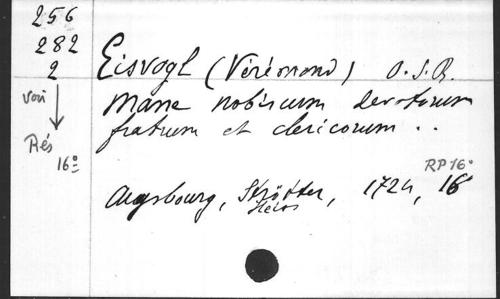 256
282
2
voir
Rés
16°
Eisvogl (Vérémond) O.S.B.
Mane nobiscum devotorum
fratrum et clericorum ..
RP 16°
Augsbourg, Strötter, 1724, 16°
Heiss